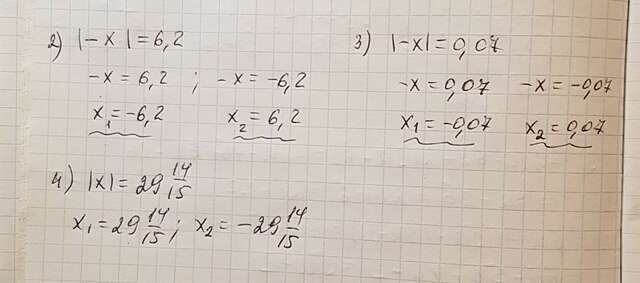 2) |-x| = 6,2
-x = 6,2 ; -x = -6,2
x₁ = -6,2 x₂ = 6,2
3) |-x| = 0,07
-x = 0,07 -x = -0,07
x₁ = -0,07 x₂ = 0,07
4) |x| = 29 14/15
x₁ = 29 14/15 ; x₂ = -29 14/15